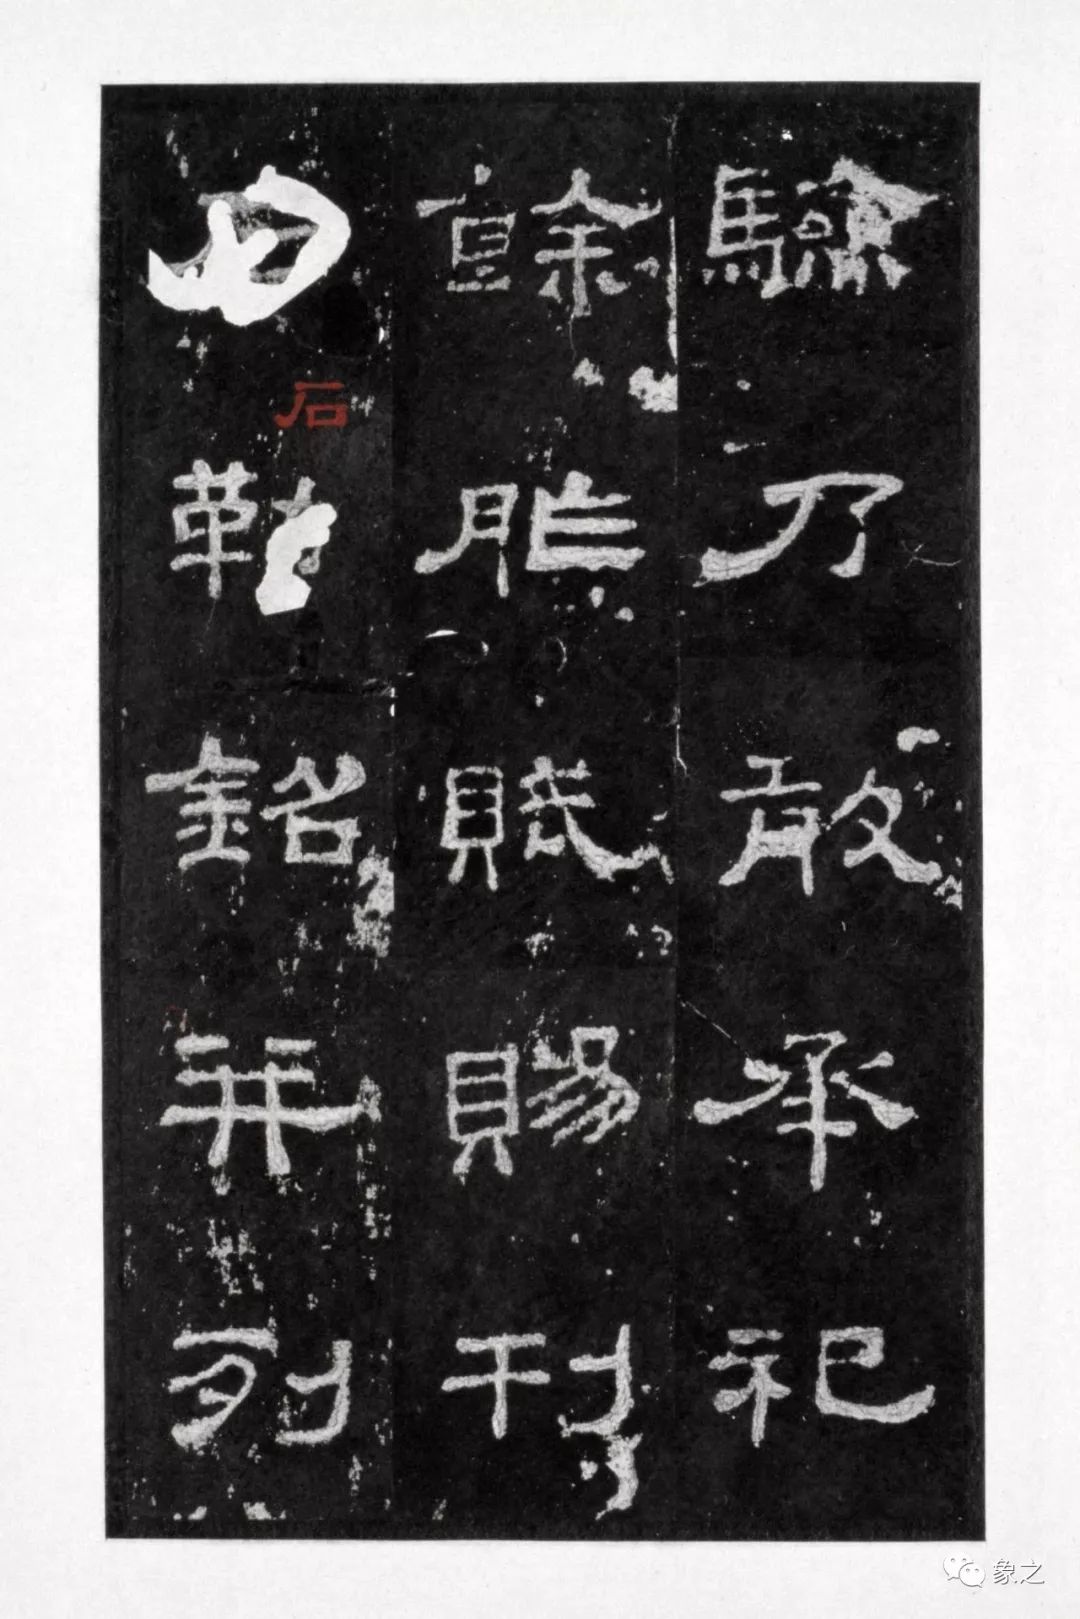 驗乃敢承祀
餘胙賦賜刊
石勒銘并列
石
象之